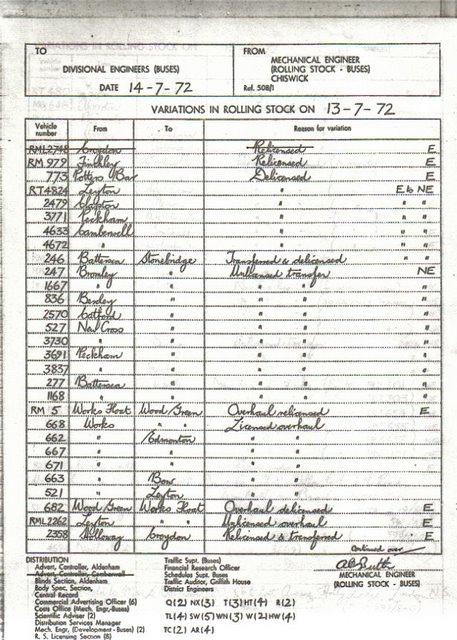 TO
DIVISIONAL ENGINEERS (BUSES)
DATE 14-7-72
FROM
MECHANICAL ENGINEER
(ROLLING STOCK - BUSES)
CHISWICK
Ref. 508/1
VARIATIONS IN ROLLING STOCK ON 13-7-72
Vehicle number From To Reason for variation
RML2748 Croydon Relicensed E
RM 979 Finchley Relicensed E
773 Potters Bar Delicensed E
RT4824 Leyton " E b NE
2479 Clapton " " "
3771 Peckham " " "
4633 Camberwell " " "
4672 " " " "
246 Battersea Stonebridge Transferred & delicensed " "
247 Bromley " Unlicensed transfer NE
1667 " " " " "
836 Bexley " " " "
2570 Catford " " " "
527 New Cross " " " "
3730 " " " " "
3691 Peckham " " " "
3837 " " " " "
277 Battersea " " " "
1168 " " " " "
RM 5 Works Float Wood Green Overhaul relicensed E
668 Works " " Licensed overhaul
662 " Edmonton " "
667 " " " "
671 " " " "
663 " Bow " "
521 " Leyton " "
682 Wood Green Works Float Overhaul delicensed E
RML2262 Leyton " " Unlicensed overhaul E
2358 Holloway Croydon Relicensed & transferred E
Continued over
DISTRIBUTION
Advert. Controller, Aldenham
Advert. Controller, Camberwell
Blinds Section, Aldenham
Body Supt. Section,
Central Record
Commercial Advertising Officer (6)
Costs Office (Mech. Engr.-Buses)
Scientific Adviser (2)
Distribution Services Manager
Mech. Engr. (Development - Buses) (2)
R. S. Licensing Section (8)
Traffic Supt. (Buses)
Financial Research Officer
Schedules Supt. Buses
Traffic Auditor, Griffith House
District Engineers
Q(2) NX(3) T(3) HT(4) R(2)
TL(4) SW(5) WN(3) W(2) HW(4)
TC(2) AR(4)
MECHANICAL ENGINEER
(ROLLING STOCK - BUSES)